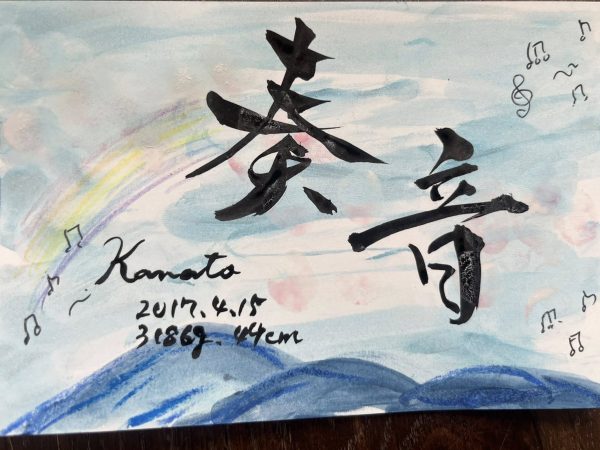 奏音
Kanato
2017.4.15
3186g. 44cm